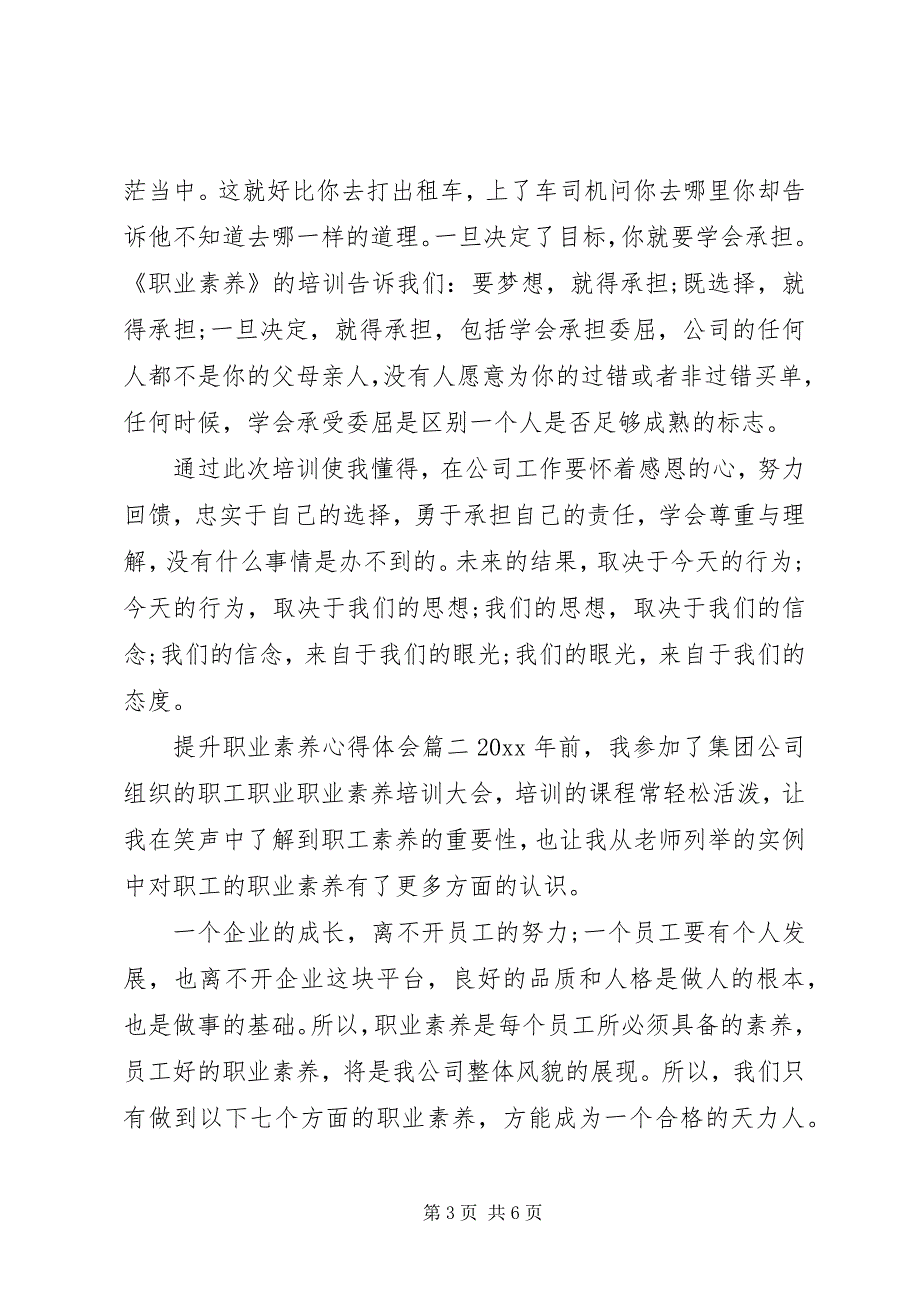 茫当中。这就好比你去打出租车，上了车司机问你去哪里你却告
诉他不知道去哪一样的道理。一旦决定了目标，你就要学会承担。
《职业素养》的培训告诉我们：要梦想，就得承担;既选择，就
得承担;一旦决定，就得承担，包括学会承担委屈，公司的任何
人都不是你的父母亲人，没有人愿意为你的过错或者非过错买单，
任何时候，学会承受委屈是区别一个人是否足够成熟的标志。
通过此次培训使我懂得，在公司工作要怀着感恩的心，努力
回馈，忠实于自己的选择，勇于承担自己的责任，学会尊重与理
解，没有什么事情是办不到的。未来的结果，取决于今天的行为;
今天的行为，取决于我们的思想;我们的思想，取决于我们的信
念;我们的信念，来自于我们的眼光;我们的眼光，来自于我们的
态度。
提升职业素养心得体会篇二 20xx 年前，我参加了集团公司
组织的职工职业职业素养培训大会，培训的课程常轻松活泼，让
我在笑声中了解到职工素养的重要性，也让我从老师列举的实例
中对职工的职业素养有了更多方面的认识。
一个企业的成长，离不开员工的努力;一个员工要有个人发
展，也离不开企业这块平台，良好的品质和人格是做人的根本，
也是做事的基础。所以，职业素养是每个员工所必须具备的素养，
员工好的职业素养，将是我公司整体风貌的展现。所以，我们只
有做到以下七个方面的职业素养，方能成为一个合格的天力人。
第 3 页 共 6 页